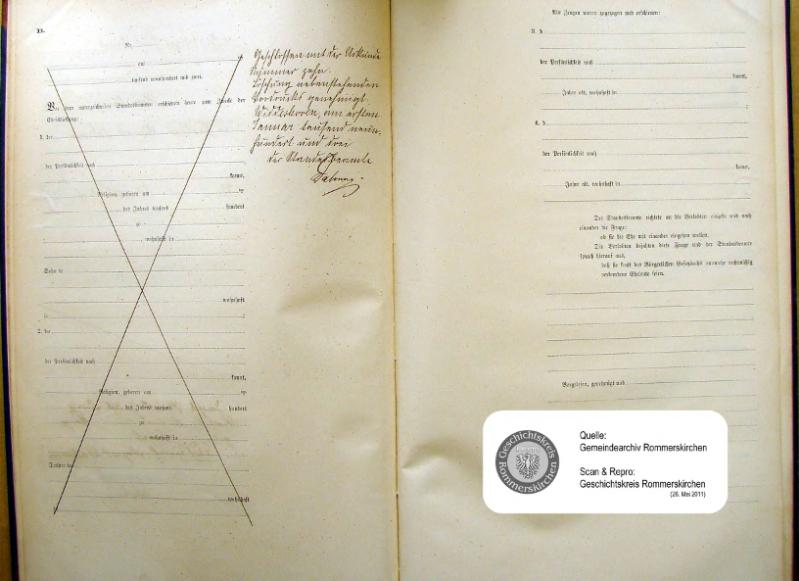 Nr.
am
tausend neunhundert und zwei.
Vor dem unterzeichneten Standesbeamten erschienen heute zum Zwecke der
Eheschließung:
1. der
der Persönlichkeit nach
kannt,
Religion, geboren am
des Jahres tausend hundert
zu
, wohnhaft in
Sohn de
wohnhaft
in
2. die
der Persönlichkeit nach
kannt,
Religion, geboren am
des Jahres tausend hundert
zu
, wohnhaft in
Tochter de
wohnhaft
Geschlossen mit der Urkunde
Nummer zehn.
Löschung nebenstehenden
Vordrucks genehmigt.
am ersten
Januar tausend neun-
hundert und drei
der Standesbeamte
Als Zeugen waren zugezogen und erschienen:
3. d
der Persönlichkeit nach
kannt,
Jahre alt, wohnhaft in
;
4. d
der Persönlichkeit nach
kannt,
Jahre alt, wohnhaft in
Der Standesbeamte richtete an die Verlobten einzeln und nach
einander die Frage:
ob sie die Ehe mit einander eingehen wollen.
Die Verlobten bejahten diese Frage und der Standesbeamte
sprach hierauf aus,
daß sie kraft des Bürgerlichen Gesetzbuchs nunmehr rechtmäßig
verbundene Eheleute seien.
Vorgelesen, genehmigt und
Geschichtskreis Rommerskirchen
Quelle:
Gemeindearchiv Rommerskirchen
Scan & Repro:
Geschichtskreis Rommerskirchen
(26. Mai 2011)